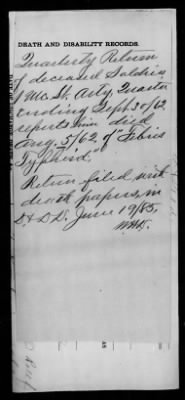 DEATH AND DISABILITY RECORDS.
Quarterly Return
of deceased Soldiers
Arty, Quarter
ending Sept. 30/62
reports him died
Aug. 5/62, of "Febris
Typhoid."
Return filed with
death papers, in
D. & D. D. June 19/85,